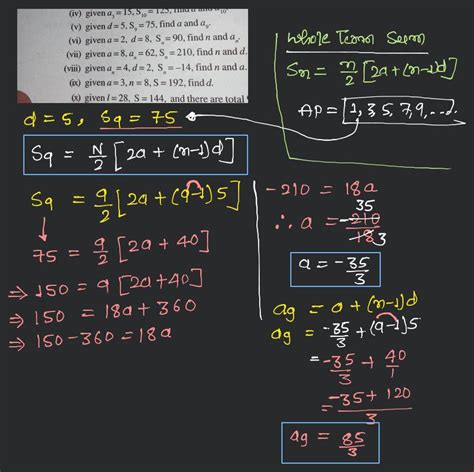 (iv) given a₃ = 15, S₁₀ = 125,
(v) given d = 5, S₉ = 75, find a and a₉.
(vi) given a = 2, d = 8, Sₙ = 90, find n and aₙ.
(vii) given a = 8, aₙ = 62, Sₙ = 210, find n and d.
(viii) given aₙ = 4, d = 2, Sₙ = −14, find n and a.
(ix) given a = 3, n = 8, S = 192, find d.
(x) given l = 28, S = 144, and there are total
Whole Term Sum
Sn = n/2 [2a + (n-1)d]
AP = [1, 3, 5, 7, 9, ...]
d = 5, S9 = 75
S9 = N/2 [2a + (n-1)d]
S9 = 9/2 [2a + (9-1)5]
75 = 9/2 [2a + 40]
⇒ 150 = 9 [2a + 40]
⇒ 150 = 18a + 360
⇒ 150 - 360 = 18a
-210 = 18a
∴ a = -210/18 35 3
a = -35/3
a9 = a + (n-1)d
a9 = -35/3 + (9-1)5
= -35/3 + 40/1
= -35 + 120/3
a9 = 85/3